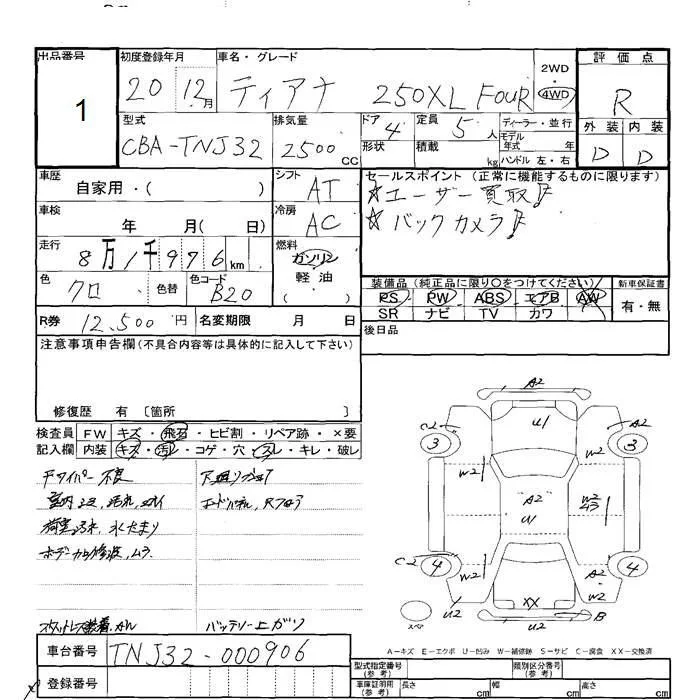 出品番号 1
初度登録年月 20 12月
車名・グレード ティアナ 250XL FOUR
2WD・4WD
評価点 R
外装 内装
D D
型式 CBA-TNJ32
排気量 2500 CC
ドア 4
形状
定員 5 人
積載 kg
ディーラー・並行
モデル年式 年
ハンドル 左・右
車歴 自家用・( )
シフト AT
セールスポイント (正常に機能するものに限ります)
☆ユーザー買取!!
☆バックカメラ!!
車検 年 月( 日)
冷房 AC
走行 8万1千976km
燃料 ガソリン
軽油
( )
色 クロ 色替
色コード B20
装備品 (純正品に限り○をつけてください)
新車保証書
PS PW ABS エアB AW
有・無
SR ナビ TV カワ
R券 12,500円
名変期限 月 日
後日品
注意事項申告欄 (不具合内容等は具体的に記入して下さい)
修復歴 有 〔箇所 〕
検査員 FW キズ・飛石・ヒビ割・リペア跡・×要
記入欄 内装 キズ・汚レ・コゲ・穴・スレ・キレ・破レ
Fワイパー不良
荷室汚れ、水たまり
バッテリー上がり
車台番号 TNJ32-000906
登録番号
A2
U1
C2 A2
3 3
W2 W2
A2
U1
W2
C2 4 4
W2 A2
U2 XX W2
B
U2
スペア
A－キズ E－エクボ U－凹み W－補修跡 S－サビ C－腐食 XX－交換済
型式指定番号 (参考) 類別区分番号 (参考)
車庫証明用 (参考) 長さ cm 幅 cm 高さ cm